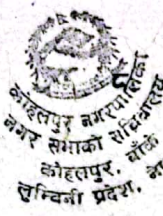 कोहलपुर नगरपालिका
नगर सभाको सचिवालय
कोहलपुर, बाँके
लुम्बिनी प्रदेश,